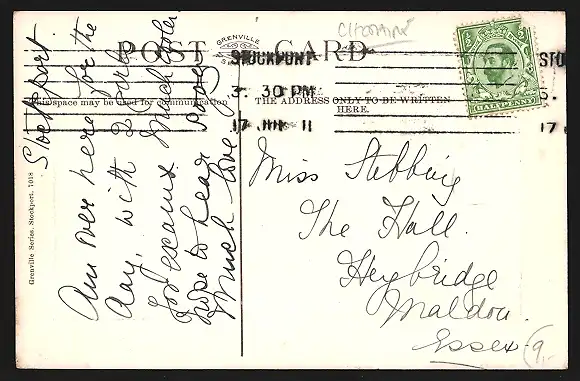 GRENVILLE
POST CARD
STOCKPORT
3. 30 PM
17 JUN 11
HALFPENNY
This space may be used for communication
THE ADDRESS ONLY TO BE WRITTEN
HERE.
Stockport
Am over here for the
day, with 2 girls
for exams. Much cooler,
hope to hear
Much love
Miss Stebbing
The Hall.
Heybridge
Maldon.
Essex
Grenville Series. Stockport. 1018